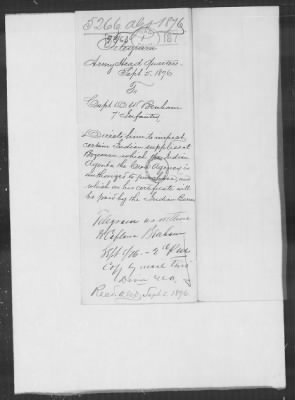 5266 AGO 1876
Telegram
Army Head Quarters
Sept 5. 1876
To
Capt D. W. Benham
7" Infantry
Directs him to inspect
certain Indian supplies at
Bozeman which the Indian
Agent for the Crow Agency is
authorized to purchase, and
which on his certificate will
be paid by the Indian Bureau
Telegram as written
to Captain Benham
Sept 5/76 - 2
Copy by mail
Recd A.G.O. Sept 5. 1876.